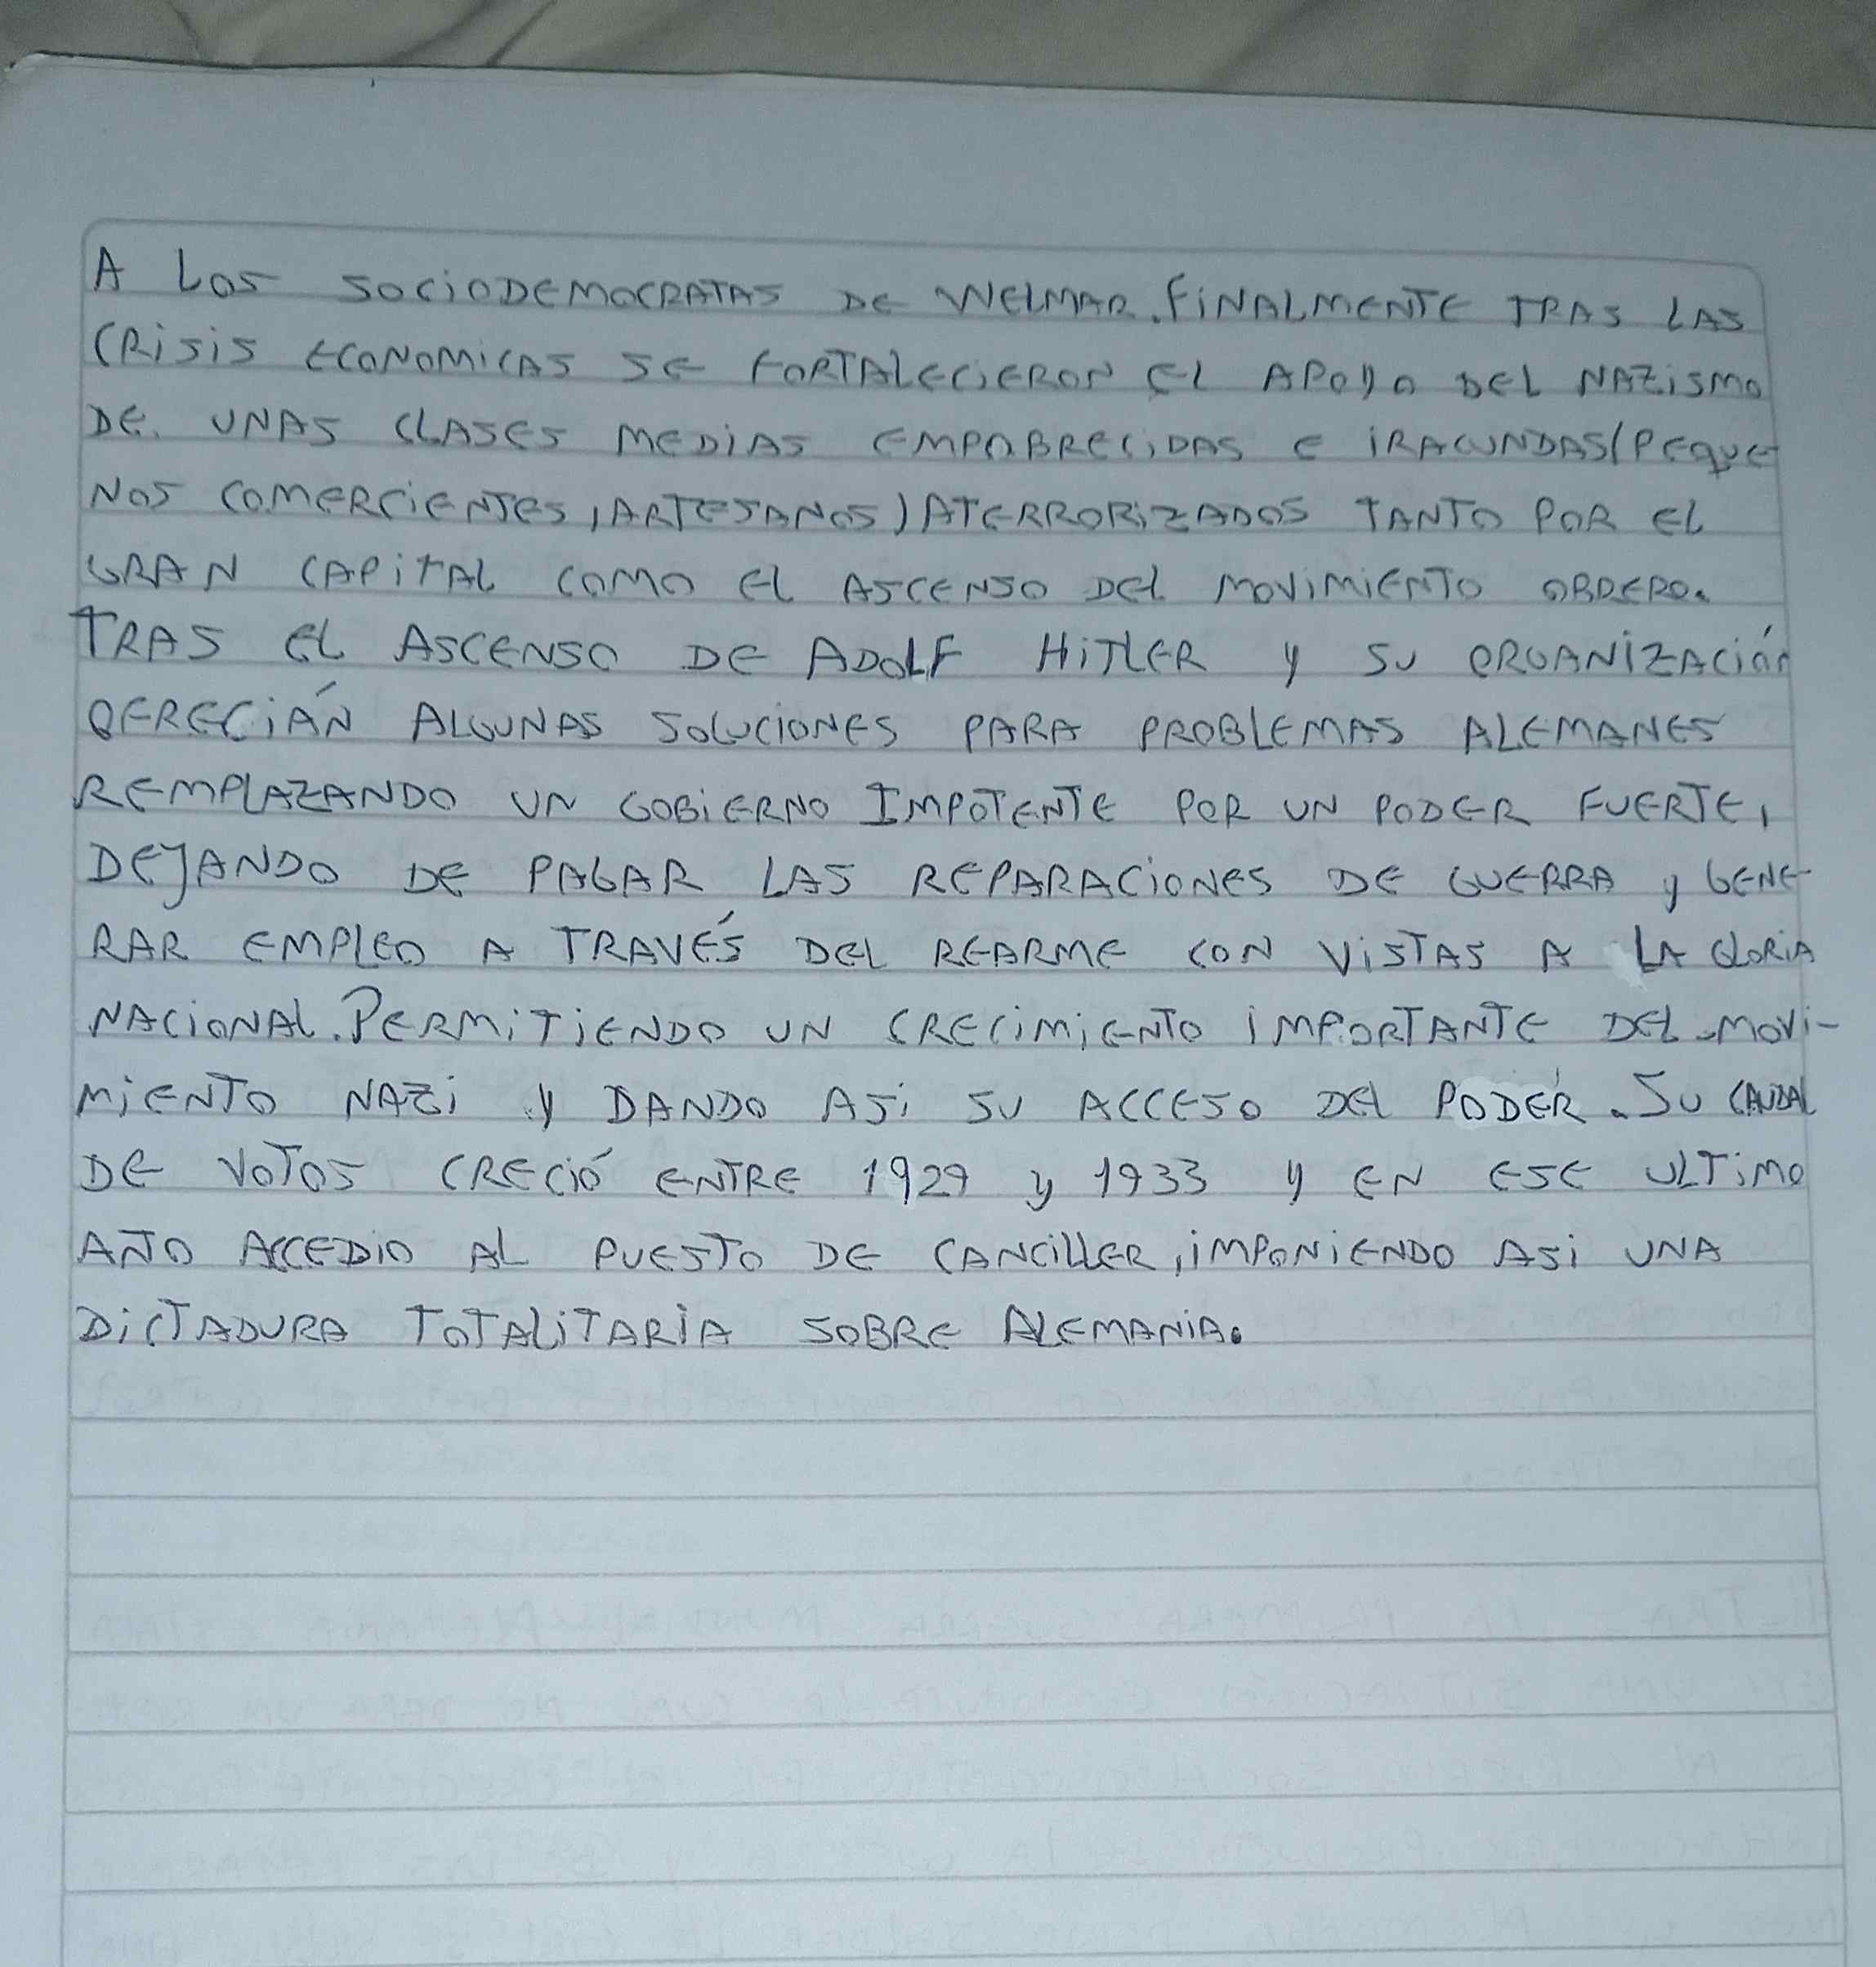 A LOS SOCIODEMOCRATAS DE WELMAR. FINALMENTE TRAS LAS
CRISIS ECONOMICAS SE FORTALECIERON EL APOYO DEL NAZISMO
DE UNAS CLASES MEDIAS EMPOBRECIDAS E IRACUNDAS (PEQUE
NOS COMERCIENTES, ARTESANOS) ATERRORIZADOS TANTO POR EL
GRAN CAPITAL COMO EL ASCENSO DEL MOVIMIENTO OBRERO.
TRAS EL ASCENSO DE ADOLF HITLER Y SU ORGANIZACIÓN
OFRECIÁN ALGUNAS SOLUCIONES PARA PROBLEMAS ALEMANES
REMPLAZANDO UN GOBIERNO IMPOTENTE POR UN PODER FUERTE,
DEJANDO DE PAGAR LAS REPARACIONES DE GUERRA Y GENE-
RAR EMPLEO A TRAVÉS DEL REARME CON VISTAS A LA GLORIA
NACIONAL. PERMITIENDO UN CRECIMIENTO IMPORTANTE DEL MOVI-
MIENTO NAZI Y DANDO ASI SU ACCESO DEL PODER. SU CAUDAL
DE VOTOS CRECIÓ ENTRE 1929 Y 1933 Y EN ESE ULTIMO
AÑO ACCEDIO AL PUESTO DE CANCILLER, IMPONIENDO ASI UNA
DICTADURA TOTALITARIA SOBRE ALEMANIA.